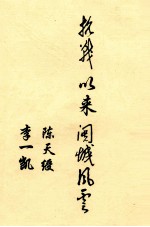 抗战以来关城风云
陈天绶
李一凯